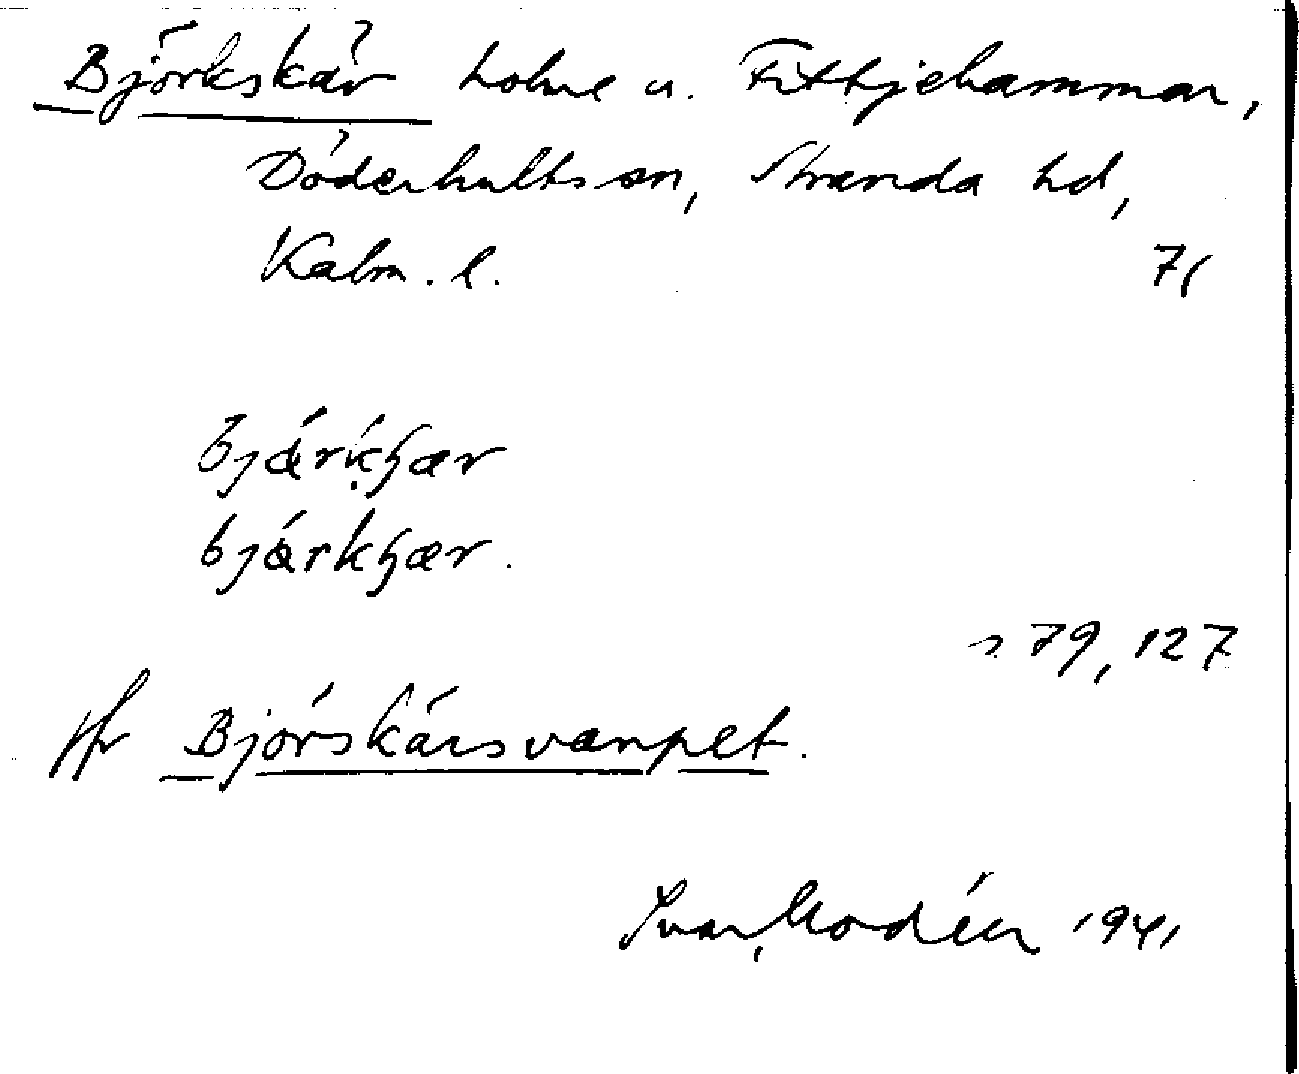 Björkskär holme u. Fittjehammar,
Döderhults sn, Stranda hd,
Kalm. l. 71
79, 127
jfr Björskärsvarpet.
Ivar Modéer 1941